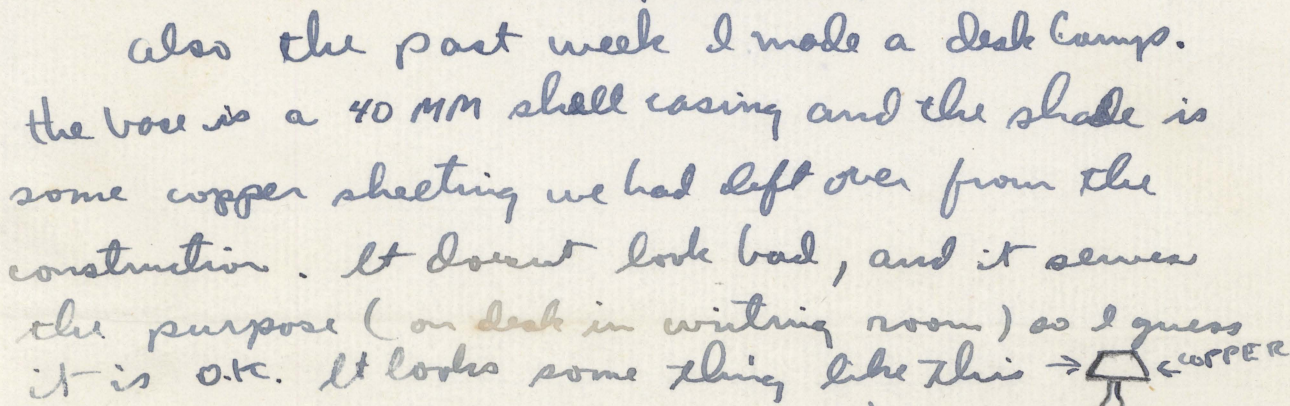 also the past week I made a desk lamp.
the base is a 40 MM shell casing and the shade is
some copper sheeting we had left over from the
construction. It doesnt look bad, and it serves
the purpose (on desk in writing room) so I guess
it is O.K. It looks some thing like this → ← COPPER